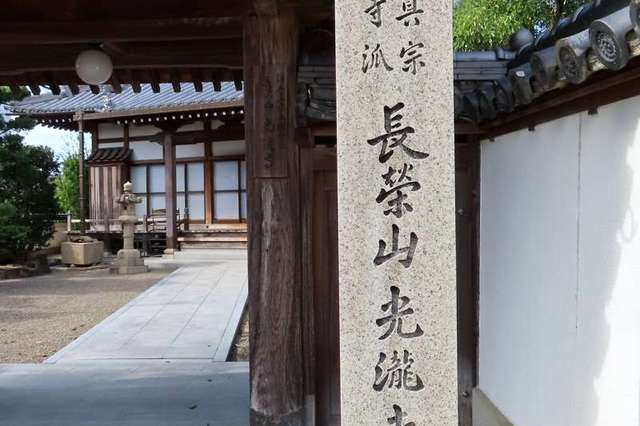 真宗
寺派
長榮山光瀧寺